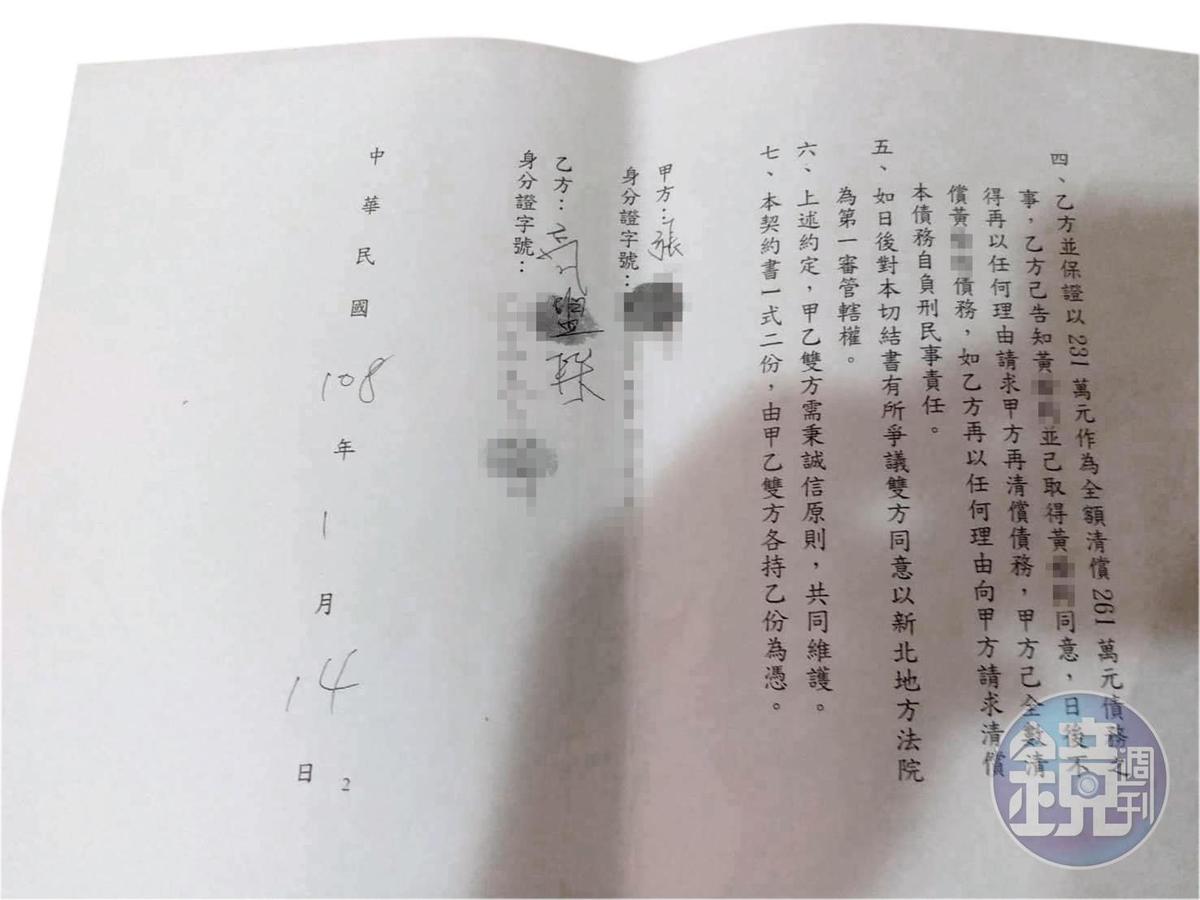 四、乙方並保證以 231 萬元作為全額清償 261 萬元債務
事，乙方己告知黃 並己取得黃 同意，日後不
得再以任何理由請求甲方再清償債務，甲方己全數清
償黃 債務，如乙方再以任何理由向甲方請求清償
本債務自負刑民事責任。
五、如日後對本切結書有所爭議雙方同意以新北地方法院
為第一審管轄權。
六、上述約定，甲乙雙方需秉誠信原則，共同維護。
七、本契約書一式二份，由甲乙雙方各持乙份為憑。
甲方：張
身分證字號：
乙方：
身分證字號：
中華民國 108 年 1 月 14 日
2
鏡週刊